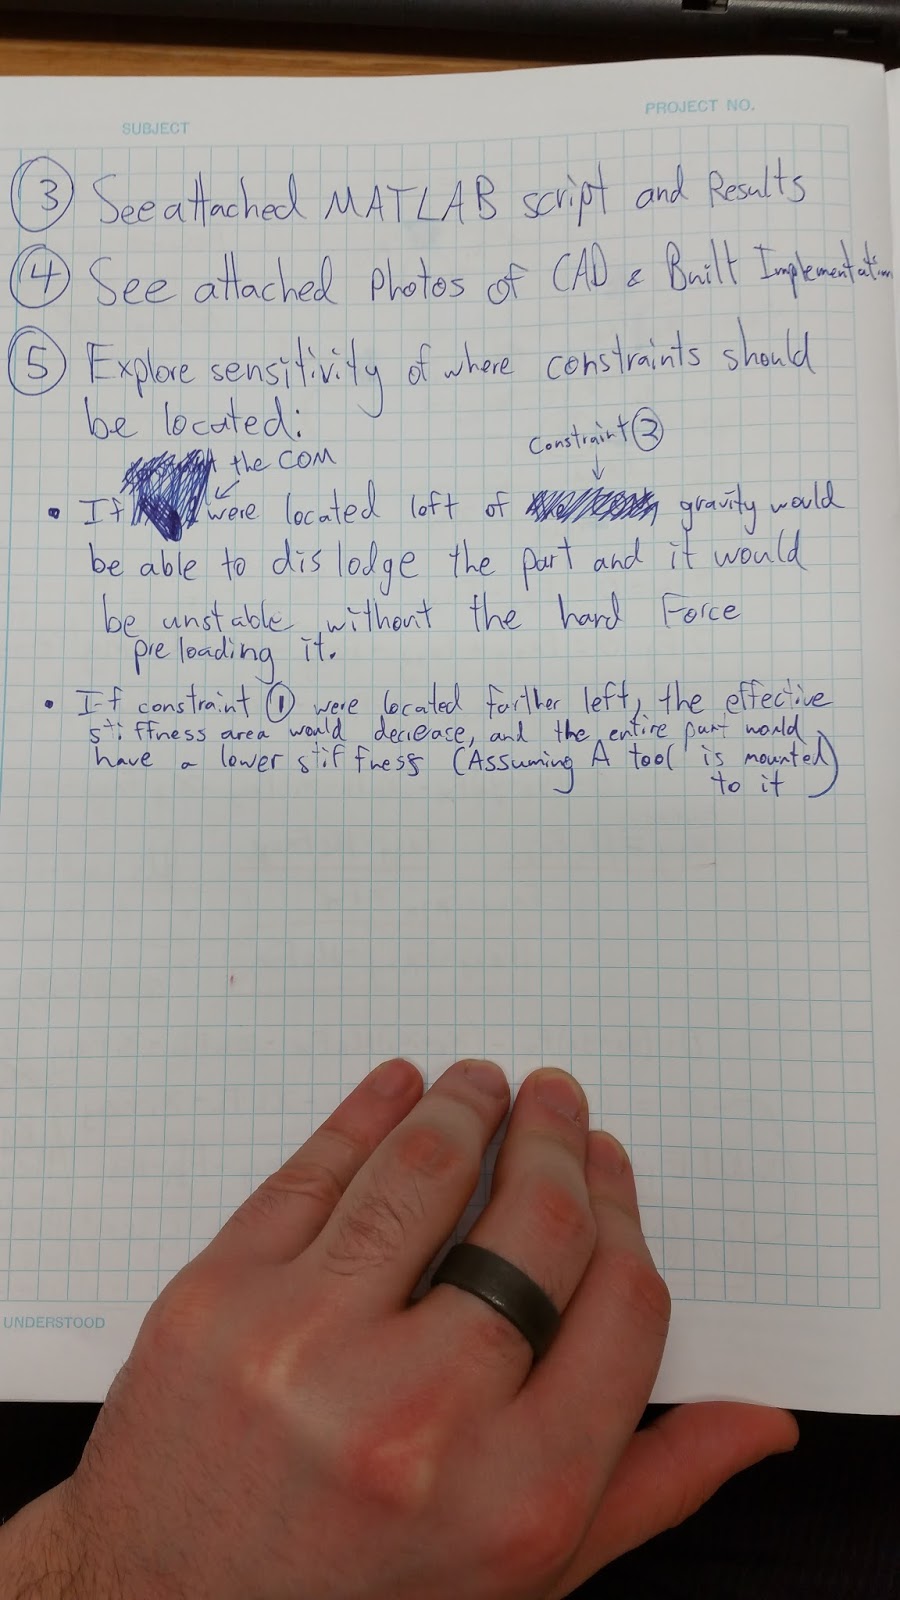 SUBJECT
PROJECT NO.
③ See attached MATLAB script and Results
④ See attached Photos of CAD & Built Implementation
⑤ Explore sensitivity of where constraints should
be located:
Constraint ②
the COM
• If were located left of gravity would
be able to dislodge the part and it would
be unstable without the hard Force
preloading it.
• If constraint ① were located farther left, the effective
stiffness area would decrease, and the entire part would
have a lower stiffness (Assuming A tool is mounted
to it)
UNDERSTOOD